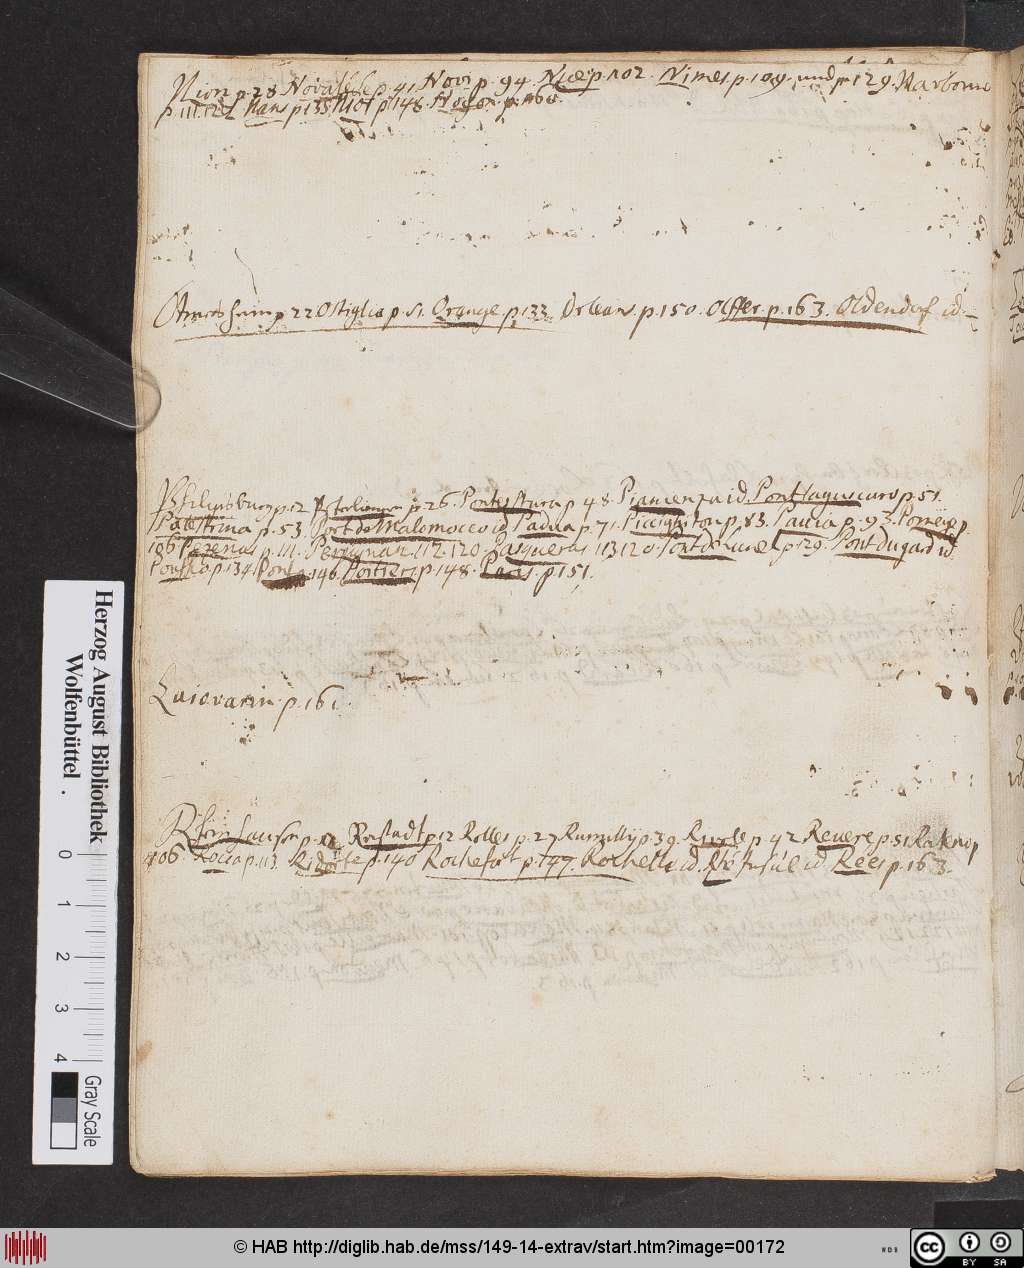 Nion p. 28 Novalese p. 41 Novi p. 94. Nice p. 102. Nimes p. 109. und p. 129. Narbonne
p. 111. 121 Nans p. 133. Niort p. 148. p. 160.
p. 22 Ostiglia p. 51. Orange p. 133 Orleans p. 150. Olffer. p. 163. Oldendorf id.
Philipsburg p. 12 p. 26. Ponte Stura p. 48. Piacenza id. Pont lagus curo p. 51.
Palestrina p. 53. Port de Malomocco id Padua p. 71. Piccighton p. 83. Pauia p. 93. p.
106 Pezenas p. 111. Perpignan 112. 120. 113 120. Pont de lunel p. 129. Pont du gard id
p. 134. Pons p. 146. Poitiers p. 148. Paris. p. 151.
p. 161.
Rheinhausen p. 12 Rastadt p. 12 Rolles p. 27 Rumilly p. 39. Rivole p. 42 Revere p. 51
106. p. 113. p. 140 Rochefort p. 147. Rochelle id. id. Rees p. 163.
Herzog August Bibliothek
Wolfenbüttel
0 1 2 3 4
Gray Scale
© HAB http://diglib.hab.de/mss/149-14-extrav/start.htm?image=00172
cc BY SA